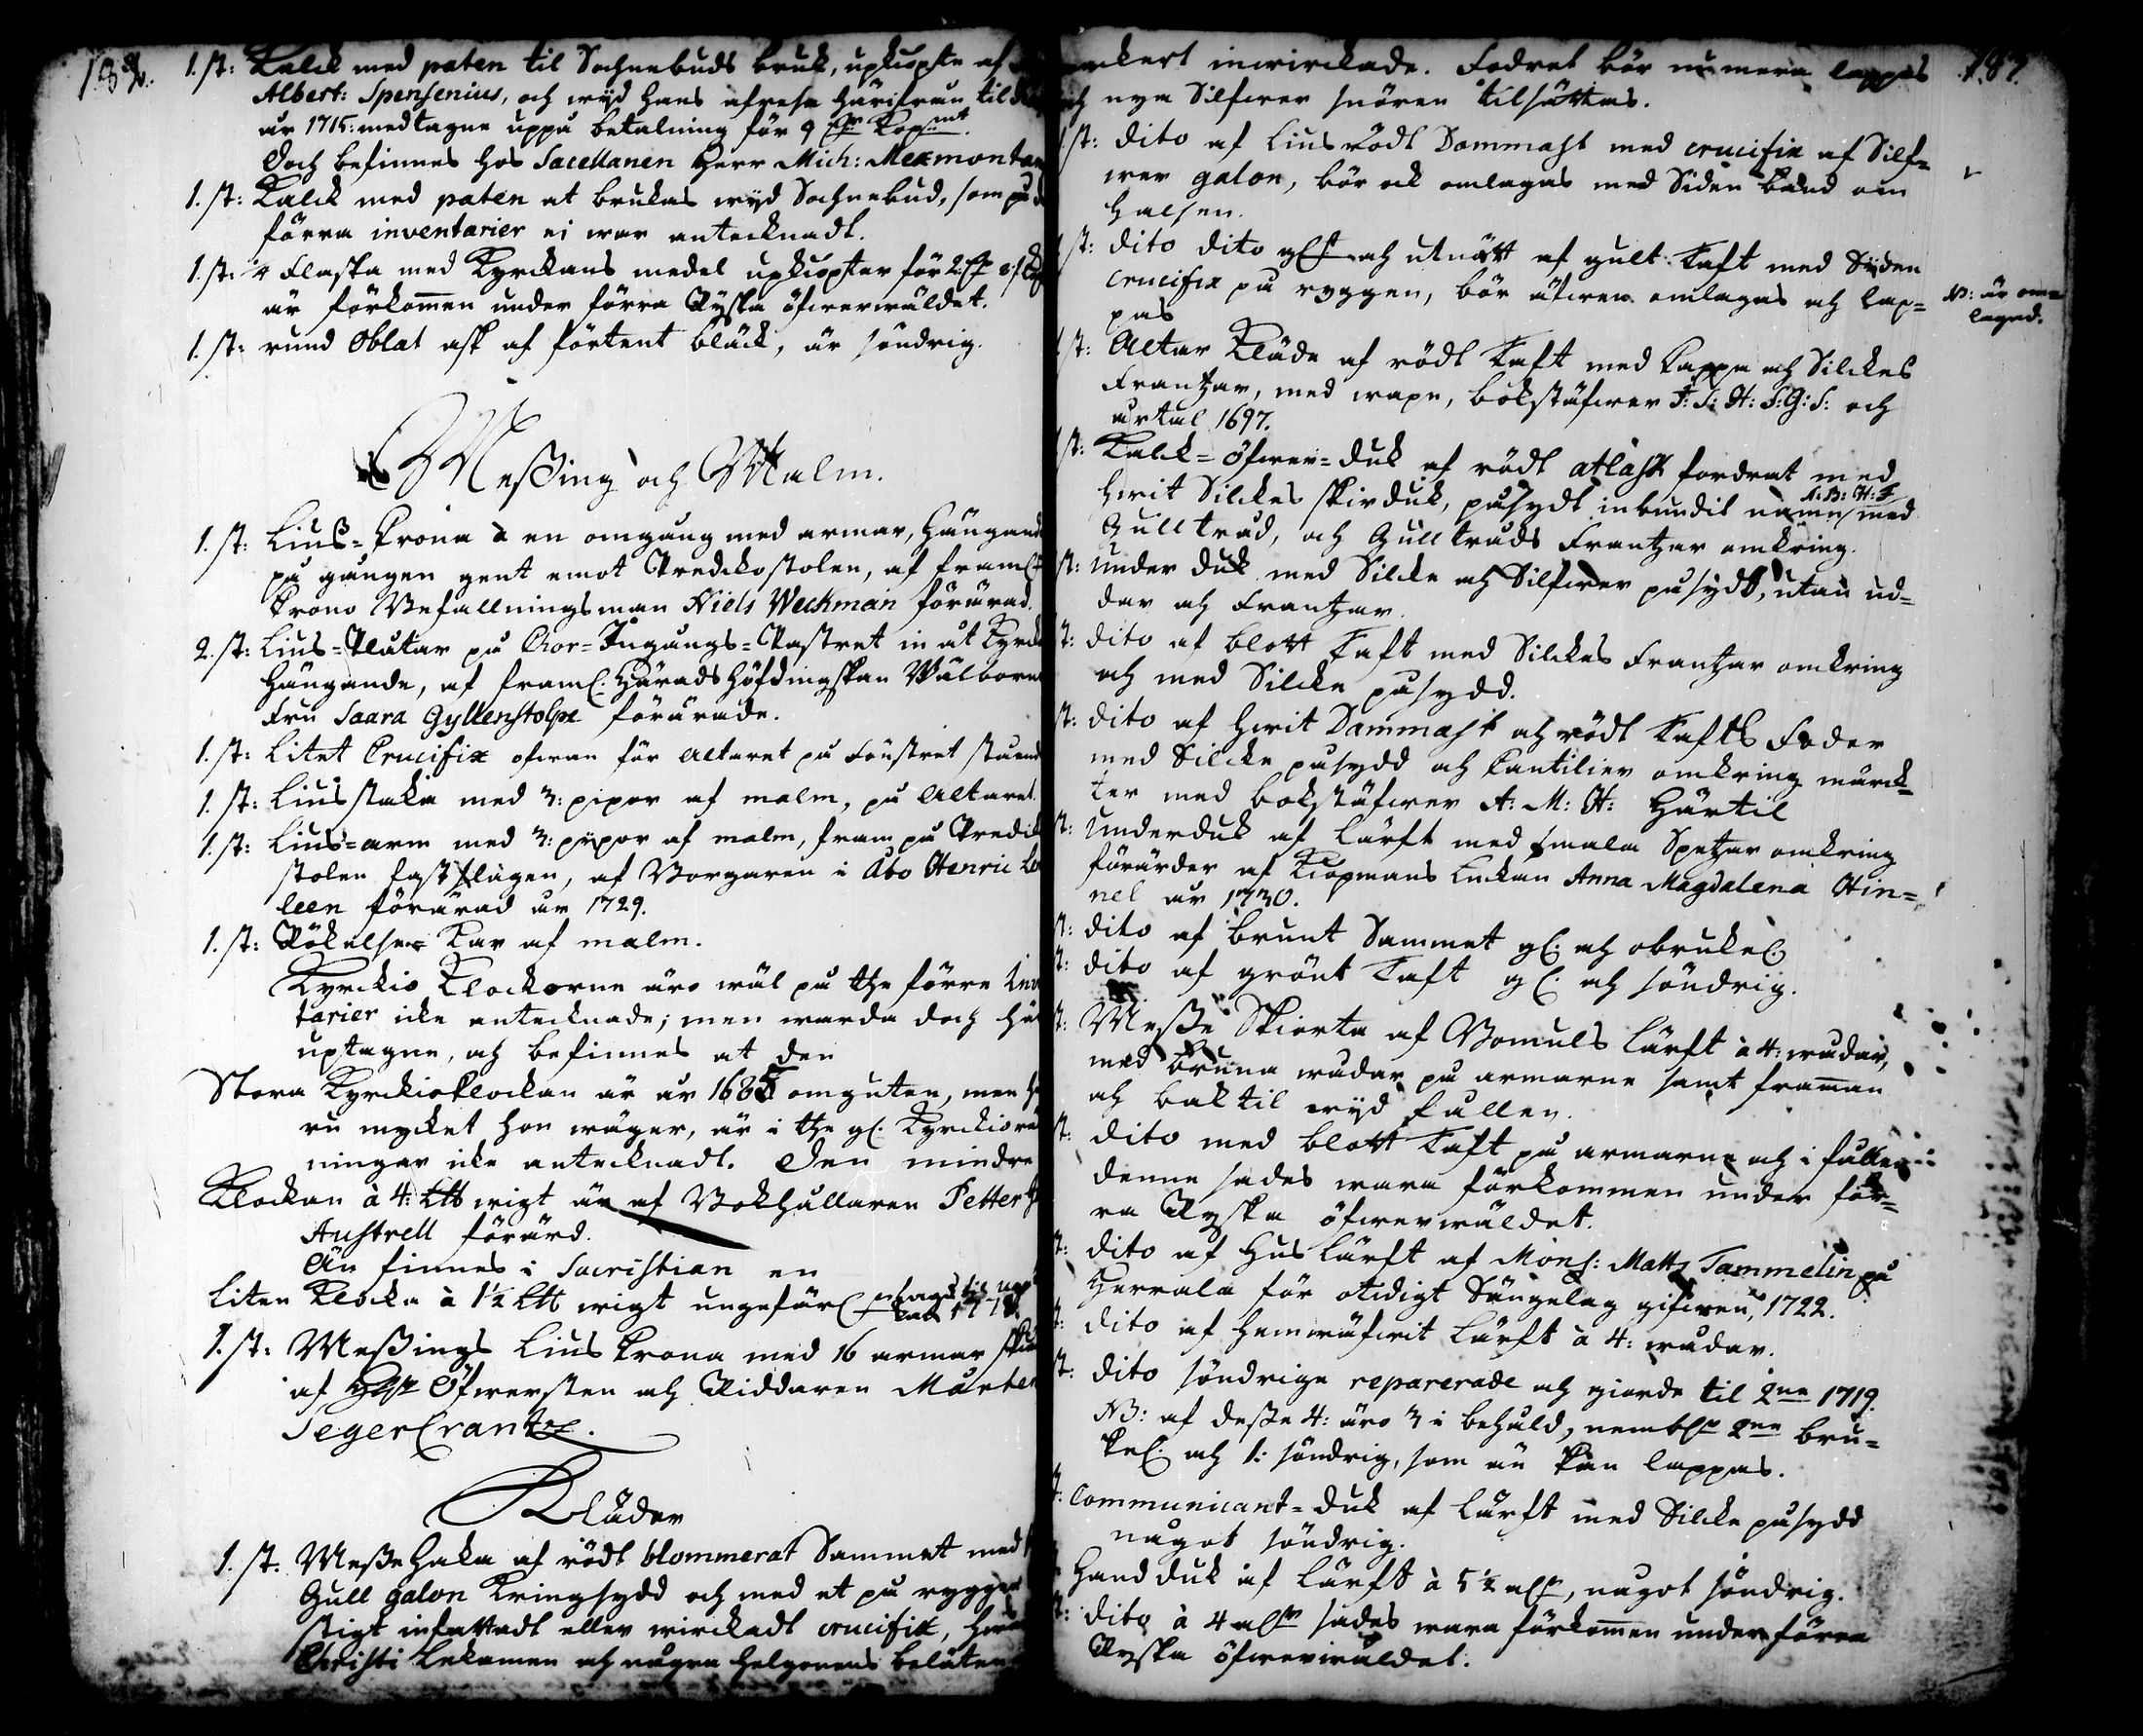 186.
1. st: Kalck med paten til Sochnebuds bruk, upkiöpte af
Albert: Spensenius, och wyd hans afresa härifrån til
år 1715: medtagne uppå betalning för 9 Kopmt.
Doch befinnes hos Sacellanen Herr Mich: Mexmontan
1. st: Kalck med paten at brukas wyd Sochnebud, som på
förra inventarier ei war antecknadt.
1. st: 4 Flaska med Kyrckans medel upkiöpter för 2
är förkom̄en under förra Ryska öfwerwäldet.
1. st: rund Oblat ask af förtent bläck, är söndrig.
Meßing och Malm.
1. st: Lius-Krona à en omgång med armar, hängand
på gången gent emot Predickostolen, af framl:
Krono Befallningsman Niels Weckman förärad.
2. st: Lius-Plåtar på Chor-Ingångs-Pastret in åt Kyrck
hängande, af framl: Häradshöfdingskan Wälborne
Fru Saara Gyllenstolpe förärade.
1. st: Litet Crucifix ofwan för Altaret på Fönstret stäend
1. st: Liusstaka med 3: pipor af malm, på Altaret.
1. st: Lius-arm med 3: pipor af malm, fram på Predick
stolen fastslagen, af Borgaren i Åbo Henric
leen förärad år 1729.
1. st: Rökelse-Kar af malm.
Kyrckio Klockorne äro wäl på the förre Inv
tarier icke antecknade; men warda doch hä
uptagne, och befinnes at den
Stora Kyrckioklockan är år 1685 omguten, men h
ru mycket hon wäger, är i the gl: Kyrckiorä
ningar icke antecknadt. Den mindre
Klockan à 4: Ltt wigt är af Bokhållaren Petter
Austrell förärd.
Än finnes i Sacristian en
liten Klocka à 1½ Ltt wigt ungefär
1. st: Meßings Lius Krona med 16 armar
af Öfwersten och Riddaren Mårten
Segercrantz.
Kläder
1. st. Meße Haka af rödt blommerat Sammet med
Gull galon Kringsydd och med et på ryggen
stigt infattadt eller wirckadt crucifix,
Christi Lekamen och några helgonens beläten
187.
ckert inwirckade. Fodret bör nu mera lappas
och nya Silfwer snören tilsättas.
st: dito af liusrödt Dammast med crucifix af Silf-
wer galon, bör ock omlagas med Siden band om
halsen.
st: dito dito gl: och utnött af gult Taft med Syden
crucifix på ryggen, bör äfwen omlagas och lap-
pas
NB: är om-
lagad.
st: Altar Kläde af rödt Taft med Kappa och Silckes
Frantzar, med wapn, bokstäfwer J: S: H: S: G: S: och
årtal 1697.
st: Kalck-öfwer-duk af rödt atlask fordrat med
hwit Silckes skirduk, påsydt inbundit namn A: B: H: F med
Gulltråd, och Gulltråds Frantzar omkring.
st: Under duk med Silcke och Silfwer påsydt, utan ud-
dar och Frantzar.
st: dito af blott Taft med Silckes Frantzar omkring
och med Silcke påsydd.
st: dito af hwit Dammast och rödt Tafts Foder
med Silcke påsydd och Cantilier omkring märck-
ter med bokstäfwer A: M: H: Härtil
st: Underduk af lärft med smala Spetzar omkring
förärder af Kiöpmans Enckan Anna Magdalena Hin-
nel år 1730.
st: dito af brunt Sammet gl: och obrukel:
st: dito af grönt Taft gl: och söndrig.
st: Meße Skiorta af Bomuls lärft à 4: wådar,
med bruna wådar på armarne samt framan
och baktil wyd fållen.
st: dito med blott Taft på armarne och i fållen
denne sades wara förkommen under för-
ra Ryska öfwerwäldet.
st: dito af Hus lärft af Mons: Matts Tammelin på
Herrala för otidigt Sängelag gifwen, 1722.
st: dito af hemwäfwit lärft à 4: wådar.
st: dito söndrige reparerade och giorde til 2ne 1719.
NB: af deße 4: äro 3 i behåld, nembl: 2ne bru-
kel: och 1: söndrig, som än kan lappas.
st: Communicant-duk af lärft med Silcke påsydd
något söndrig.
Handduk af lärft à 5½ aln, något söndrig.
st: dito à 4 aln sades wara förkom̄en under förra
Ryska öfwerwäldet.